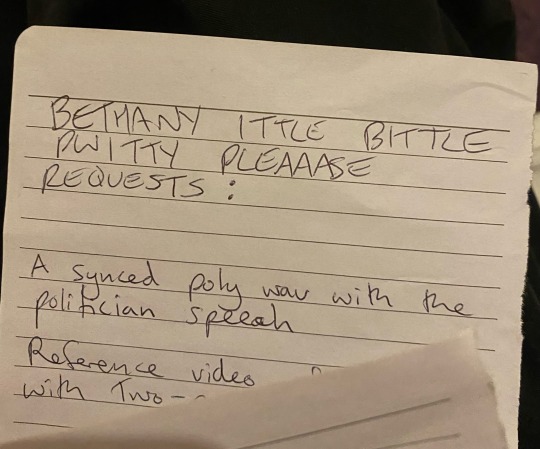 BETHANY ITTLE BITTLE
PWITTY PLEAAASE
REQUESTS :
A synced poly wav with the
politician speech
Reference video
with Two-